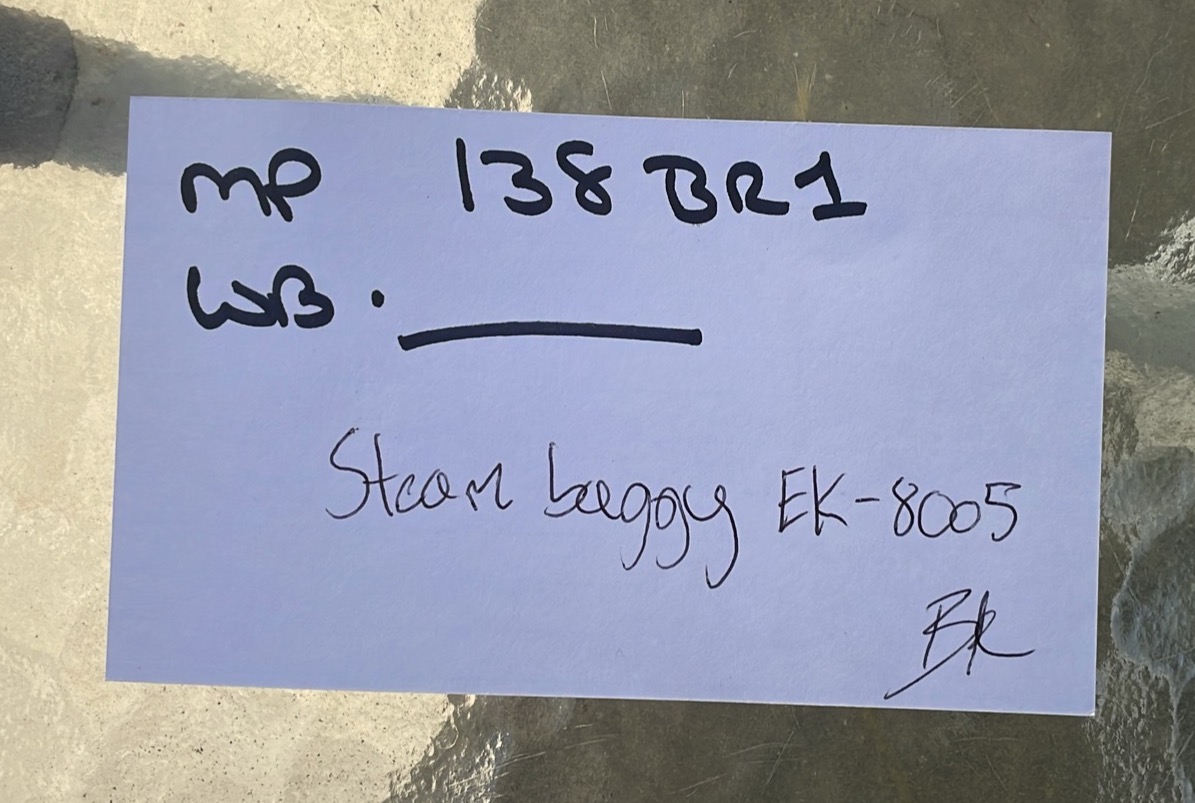 MP 138 BR1
WB.
Steam buggy EK-8005
BR